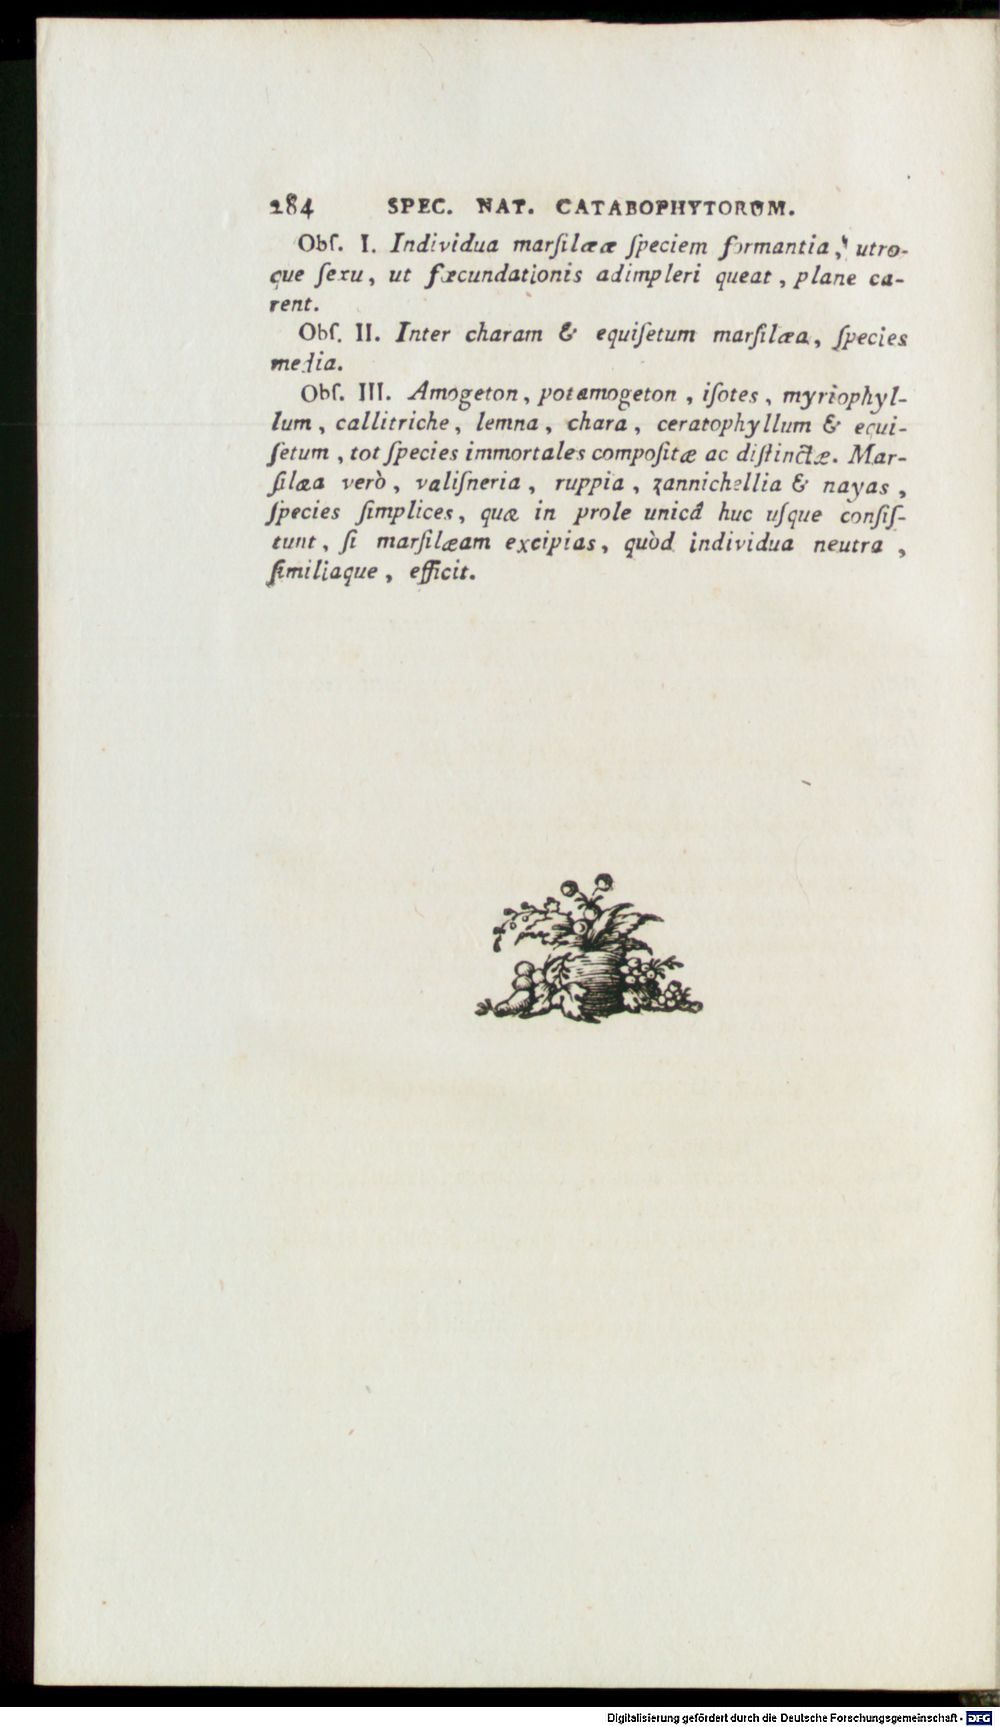 284 SPEC. NAT. CATABOPHYTORUM.
Obſ. I. Individua marſilææ ſpeciem formantia, utro-
que ſexu, ut fæcundationis adimpleri queat, plane ca-
rent.
Obſ. II. Inter charam & equiſetum marſilæa, ſpecies
media.
Obſ. III. Amogeton, potamogeton, iſotes, myriophyl-
lum, callitriche, lemna, chara, ceratophyllum & equi-
ſetum, tot ſpecies immortales compoſitæ ac diſtinctæ. Mar-
ſilæa verò, valiſneria, ruppia, zannichellia & nayas,
ſpecies ſimplices, quæ in prole unicâ huc uſque conſiſ-
tunt, ſi marſilæam excipias, quòd individua neutra,
ſimiliaque, efficit.
Digitalisierung gefördert durch die Deutsche Forschungsgemeinschaft - DFG